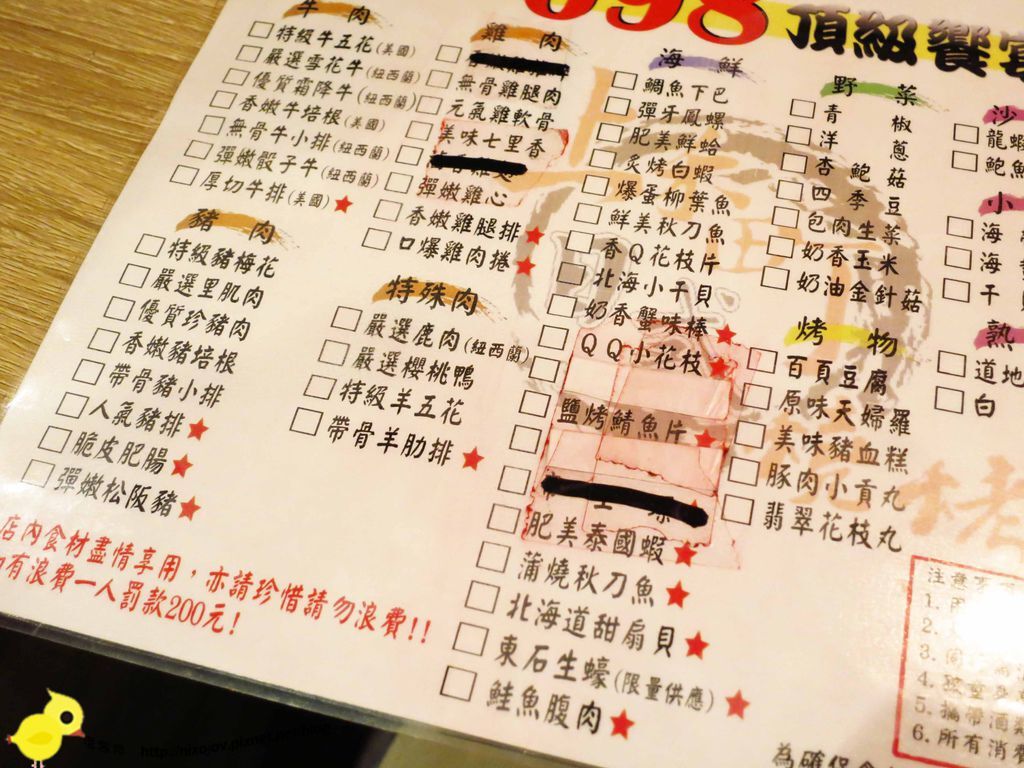 698 頂級饗宴
牛肉
特級牛五花(美國)
嚴選雪花牛(紐西蘭)
優質霜降牛(紐西蘭)
香嫩牛培根(美國)
無骨牛小排(紐西蘭)
彈嫩骰子牛(紐西蘭)
厚切牛排(美國)★
豬肉
特級豬梅花
嚴選里肌肉
優質珍豬肉
香嫩豬培根
帶骨豬小排
人氣豬排★
脆皮肥腸★
彈嫩松阪豬★
雞肉
無骨雞腿肉
元氣雞軟骨
美味七里香
彈嫩雞心
香嫩雞腿排★
口爆雞肉捲★
特殊肉
嚴選鹿肉(紐西蘭)
嚴選櫻桃鴨
特級羊五花
帶骨羊肋排★
海鮮
鯛魚下巴
彈牙鳳螺
肥美鮮蛤
炙烤白蝦
爆蛋柳葉魚
鮮美秋刀魚
香Q花枝片
北海小干貝
奶香蟹味棒★
QQ小花枝★
鹽烤鯖魚片★
肥美泰國蝦★
蒲燒秋刀魚★
北海道甜扇貝★
東石生蠔(限量供應)★
鮭魚腹肉★
野菜
青椒
洋蔥
杏鮑菇
四季豆
包肉生菜
奶香玉米
奶油金針菇
烤物
百頁豆腐
原味天婦羅
美味豬血糕
豚肉小貢丸
翡翠花枝丸
沙
龍蝦
鮑魚
小
海
海
干
熟
道地
白
店內食材盡情享用，亦請珍惜請勿浪費!!
有浪費一人罰款200元!
注意
1.
2.
3.
4.
5. 攜帶酒
6. 所有消費
為確保
http://nixojov.pixnet.net/blog